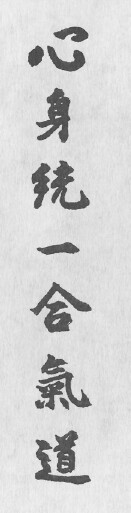 心身統一合氣道